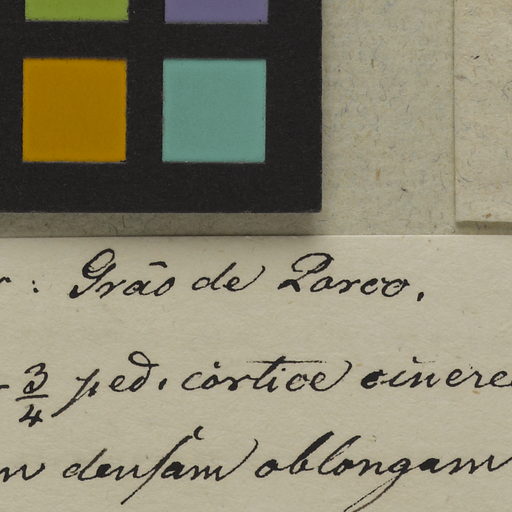 : Grão de Porco.
3/4 ped. cortice cinere
densam oblongam